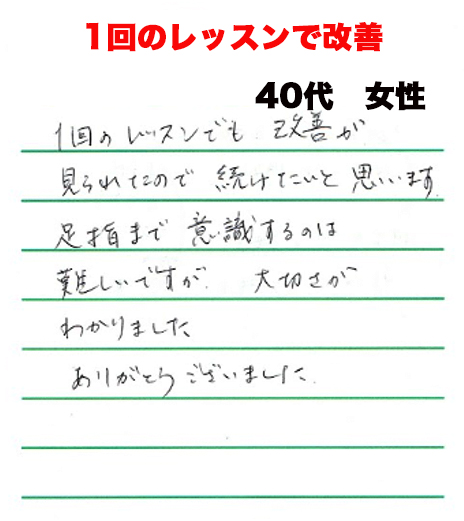 1回のレッスンで改善
40代 女性
1回のレッスンでも 改善が
見られたので 続けたいと 思います。
足指まで 意識するのは
難しいですが 大切さが
わかりました
ありがとうございました。